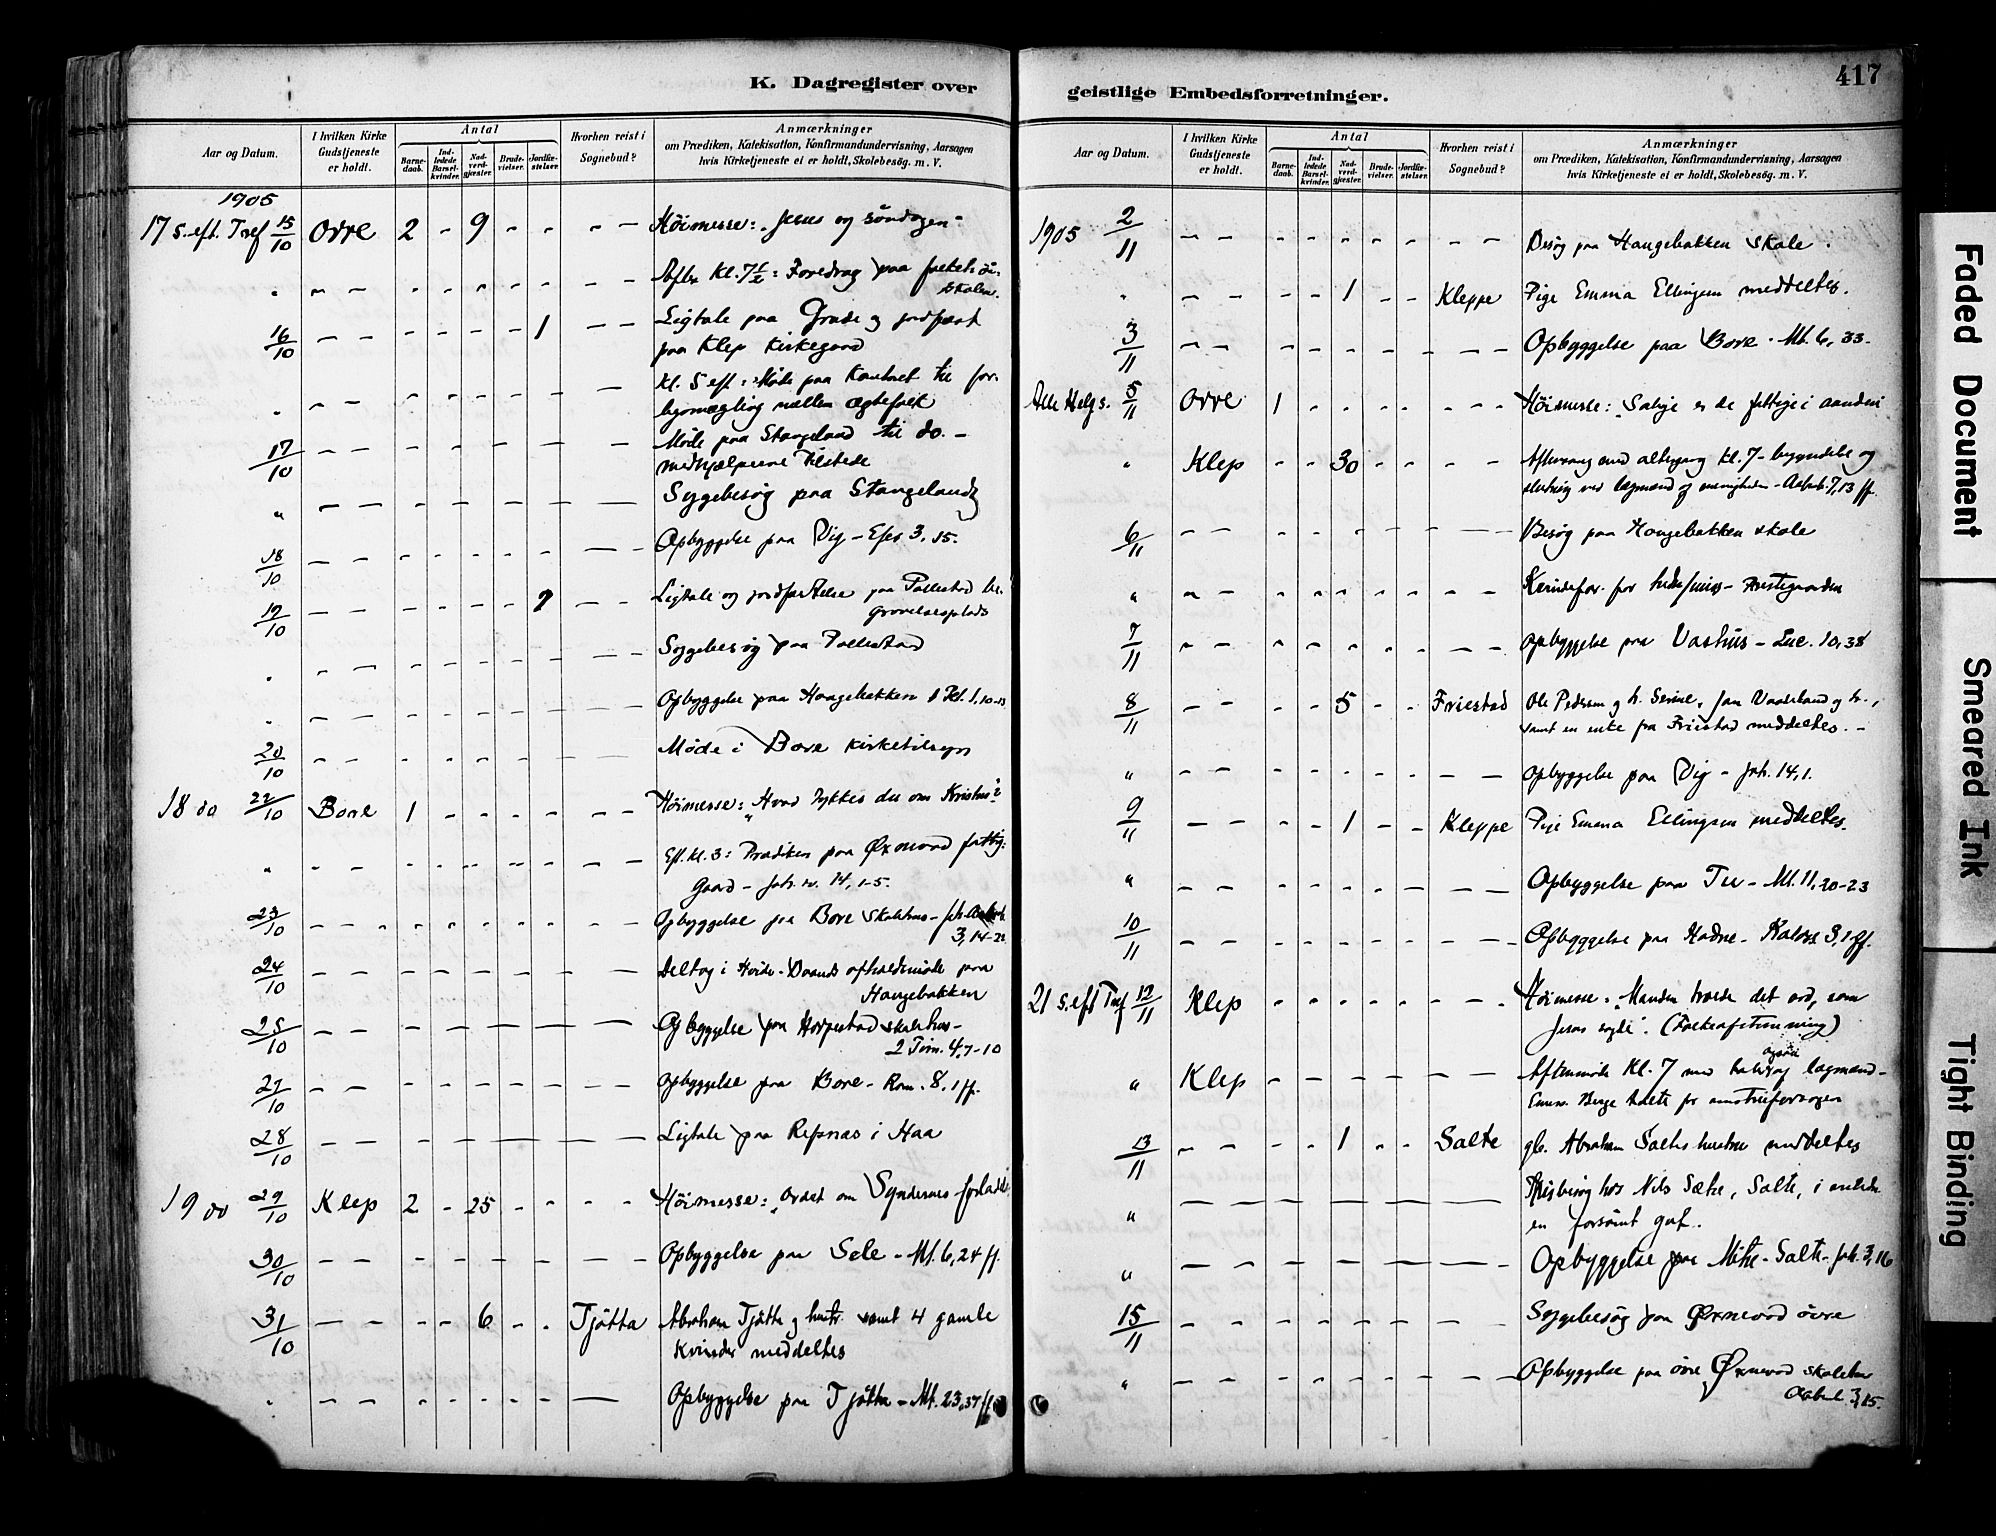 K. Dagregister over
Aar og Datum.
I hvilken Kirke Gudstjeneste er holdt.
Antal
Barne-daab.
Ind-ledede Barsel-kvinder.
Nad-verd-gjæster.
Brude-vielser.
Jordfæ-stelser.
Hvorhen reist i Sognebud?
Anmærkninger
om Prædiken, Katekisation, Konfirmandundervisning, Aarsagen
hvis Kirketjeneste ei er holdt, Skolebesög. m. V.
1905
17 s. eft. Tref 15/10 Orre 2 - 9 - - - - Höimesse: "Jesus og söndagen"
" - - - - - - - - - Aften Kl. 7½: Foredrag paa folkehöi-
skolen.
16/10 - - - - - - 1 - - Ligtale paa Grude og jordfæst
paa Klep Kirkegaard
" - - - - - - - - Kl. 5 eft: Möde paa Kontoret til for-
ligsmægling mellem ægtefolk
17/10 - - - - - - - - Möde paa Stangeland til do. -
medhjælperne tilstede
" - - - - - - - - Sygebesög paa Stangeland
18/10 - - - - - - - - Opbyggelse paa Vig - Efes 3, 15.
19/10 - - - - - - 2 - - Ligtale og jordfæstelse paa Pollestad be-
gravelsesplads
" - - - - - - - - Sygebesög paa Pollestad
" - - - - - - - - Opbyggelse paa Haugebakken 1 Kl. 1, 10-13
20/10 - - - - - - - - Möde i Bore Kirketilsyn
18 do 22/10 Bore 1 - - - - - - Höimesse: "Hvad tykkes du om Kristus?"
" - - - - - - - - Eft. Kl. 3: Prædiken paa Øxnevad fattig-
gaard - Joh. ev. 14, 1-5.
23/10 - - - - - - - - Opbyggelse paa Bore Skolehus -
3, 14-22
24/10 - - - - - - - - Deltog i Hvide-Baands afholdsmöde paa
Haugebakken
25/10 - - - - - - - - Opbyggelse paa Horpestad skolehus -
2 Tim. 4, 7-10
27/10 - - - - - - - - Opbyggelse paa Bore - Rom. 8, 1 ff.
28/10 - - - - - - - - Ligtale paa Refsnæs i Haa
19 do 29/10 Klep 2 - 25 - - - - Höimesse: "Ordet om Syndernes forladelse
30/10 - - - - - - - - Opbyggelse paa Sele - Mt. 6, 24 ff.
31/10 - - - - 6 - - Tjötta Abraham Tjötta og hustr. samt 4 gamle
Kvinder meddeltes
" - - - - - - - - Opbyggelse paa Tjötta - Mt. 23, 37 ff
geistlige Embedsforretninger.
417
Aar og Datum.
I hvilken Kirke Gudstjeneste er holdt.
Antal
Barne-daab.
Ind-ledede Barsel-kvinder.
Nad-verd-gjæster.
Brude-vielser.
Jordfæ-stelser.
Hvorhen reist i Sognebud?
Anmærkninger
om Prædiken, Katekisation, Konfirmandundervisning, Aarsagen
hvis Kirketjeneste ei er holdt, Skolebesög. m. V.
1905 2/11 - - - - - - - - - Besög paa Haugebakken skole.
" - - - - 1 - - Kleppe Pige Emma Ellingsen meddeltes.
3/11 - - - - - - - - - Opbyggelse paa Bore. Mt. 6, 33.
Alle Helg s. 5/11 Orre 1 - - - - - - Höimesse: "Salige er de fattige i aanden
" Klep - - 30 - - - - Aftensang med altergang kl. 7 - begyndelse og
slutning ved lægmænd af menigheden - Aabenb. 7, 13 ff.
6/11 - - - - - - - - Besög paa Haugebakken skole
" - - - - - - - - Kvindefor. for - Prestegaarden
7/11 - - - - - - - - Opbyggelse paa Vasshus - Luc. 10, 38
8/11 - - - - 5 - - Friestad Ole Pedersen og h. Serine, Jan Vaaland og h.,
samt en enke fra Friestad meddeltes. -
" - - - - - - - - Opbyggelse paa Vig - Joh. 14, 1.
9/11 - - - - 1 - - Kleppe Pige Emma Ellingsen meddeltes.
" - - - - - - - - Opbyggelse paa Tu - Mt. 11, 20-23
10/11 - - - - - - - - Opbyggelse paa Hadne - Kolos 3, 1 ff.
21 s. eft Tref 12/11 Klep - - - - - - - Höimesse: "Manden troede det ord, som
Jesus sagde". (Folkeafstemning)
" Klep - - - - - - - Aftenmöde Kl. 7 med tale af ogsaa lægmænd -
Berge talte for
13/11 - - - - 1 - - Salte gl. Abraham Saltes hustru meddeltes
" - - - - - - - - Husbesög hos Nils Sæthre, Salte, i anledn.
en forsömt gut.
" - - - - - - - - Opbyggelse paa Mitre-Salte - Joh. 3, 16
15/11 - - - - - - - - Sygebesög paa Øxnevad övre
" - - - - - - - - Opbyggelse paa övre Øxnevad skolehus
Aabenb. 3, 15.
Faded Document
Smeared Ink
Tight Binding